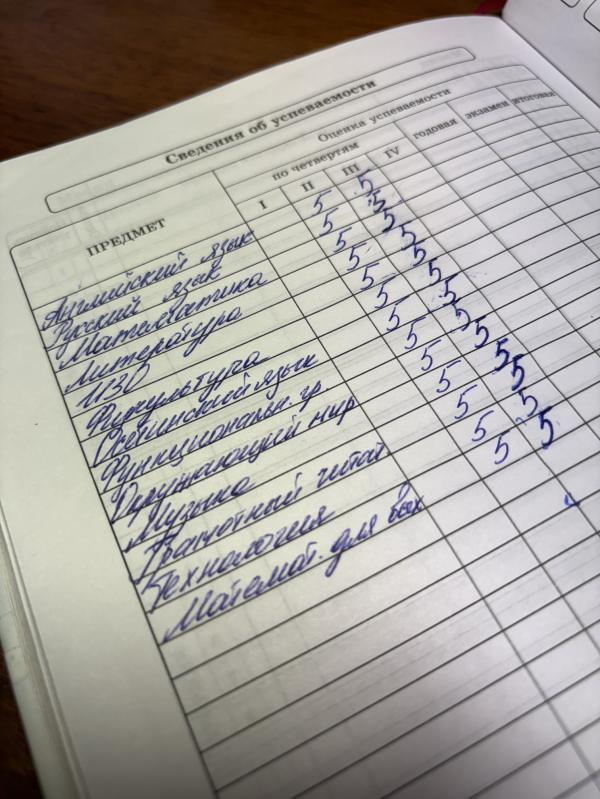 Сведения об успеваемости
ПРЕДМЕТ
Оценка успеваемости
по четвертям
годовая экзамен итоговая
I II III IV
Английский язык 5 5
Русский язык 5 5
Математика 5 5
Литература 5 5
ИЗО 5 5
Физкультура 5 5
Осетинский язык 5 5
Функциональн. гр. 5 5
Окружающий мир 5 5
Музыка 5 5
Грамотный читат 5 5
Технология 5 5
Математ. для всех